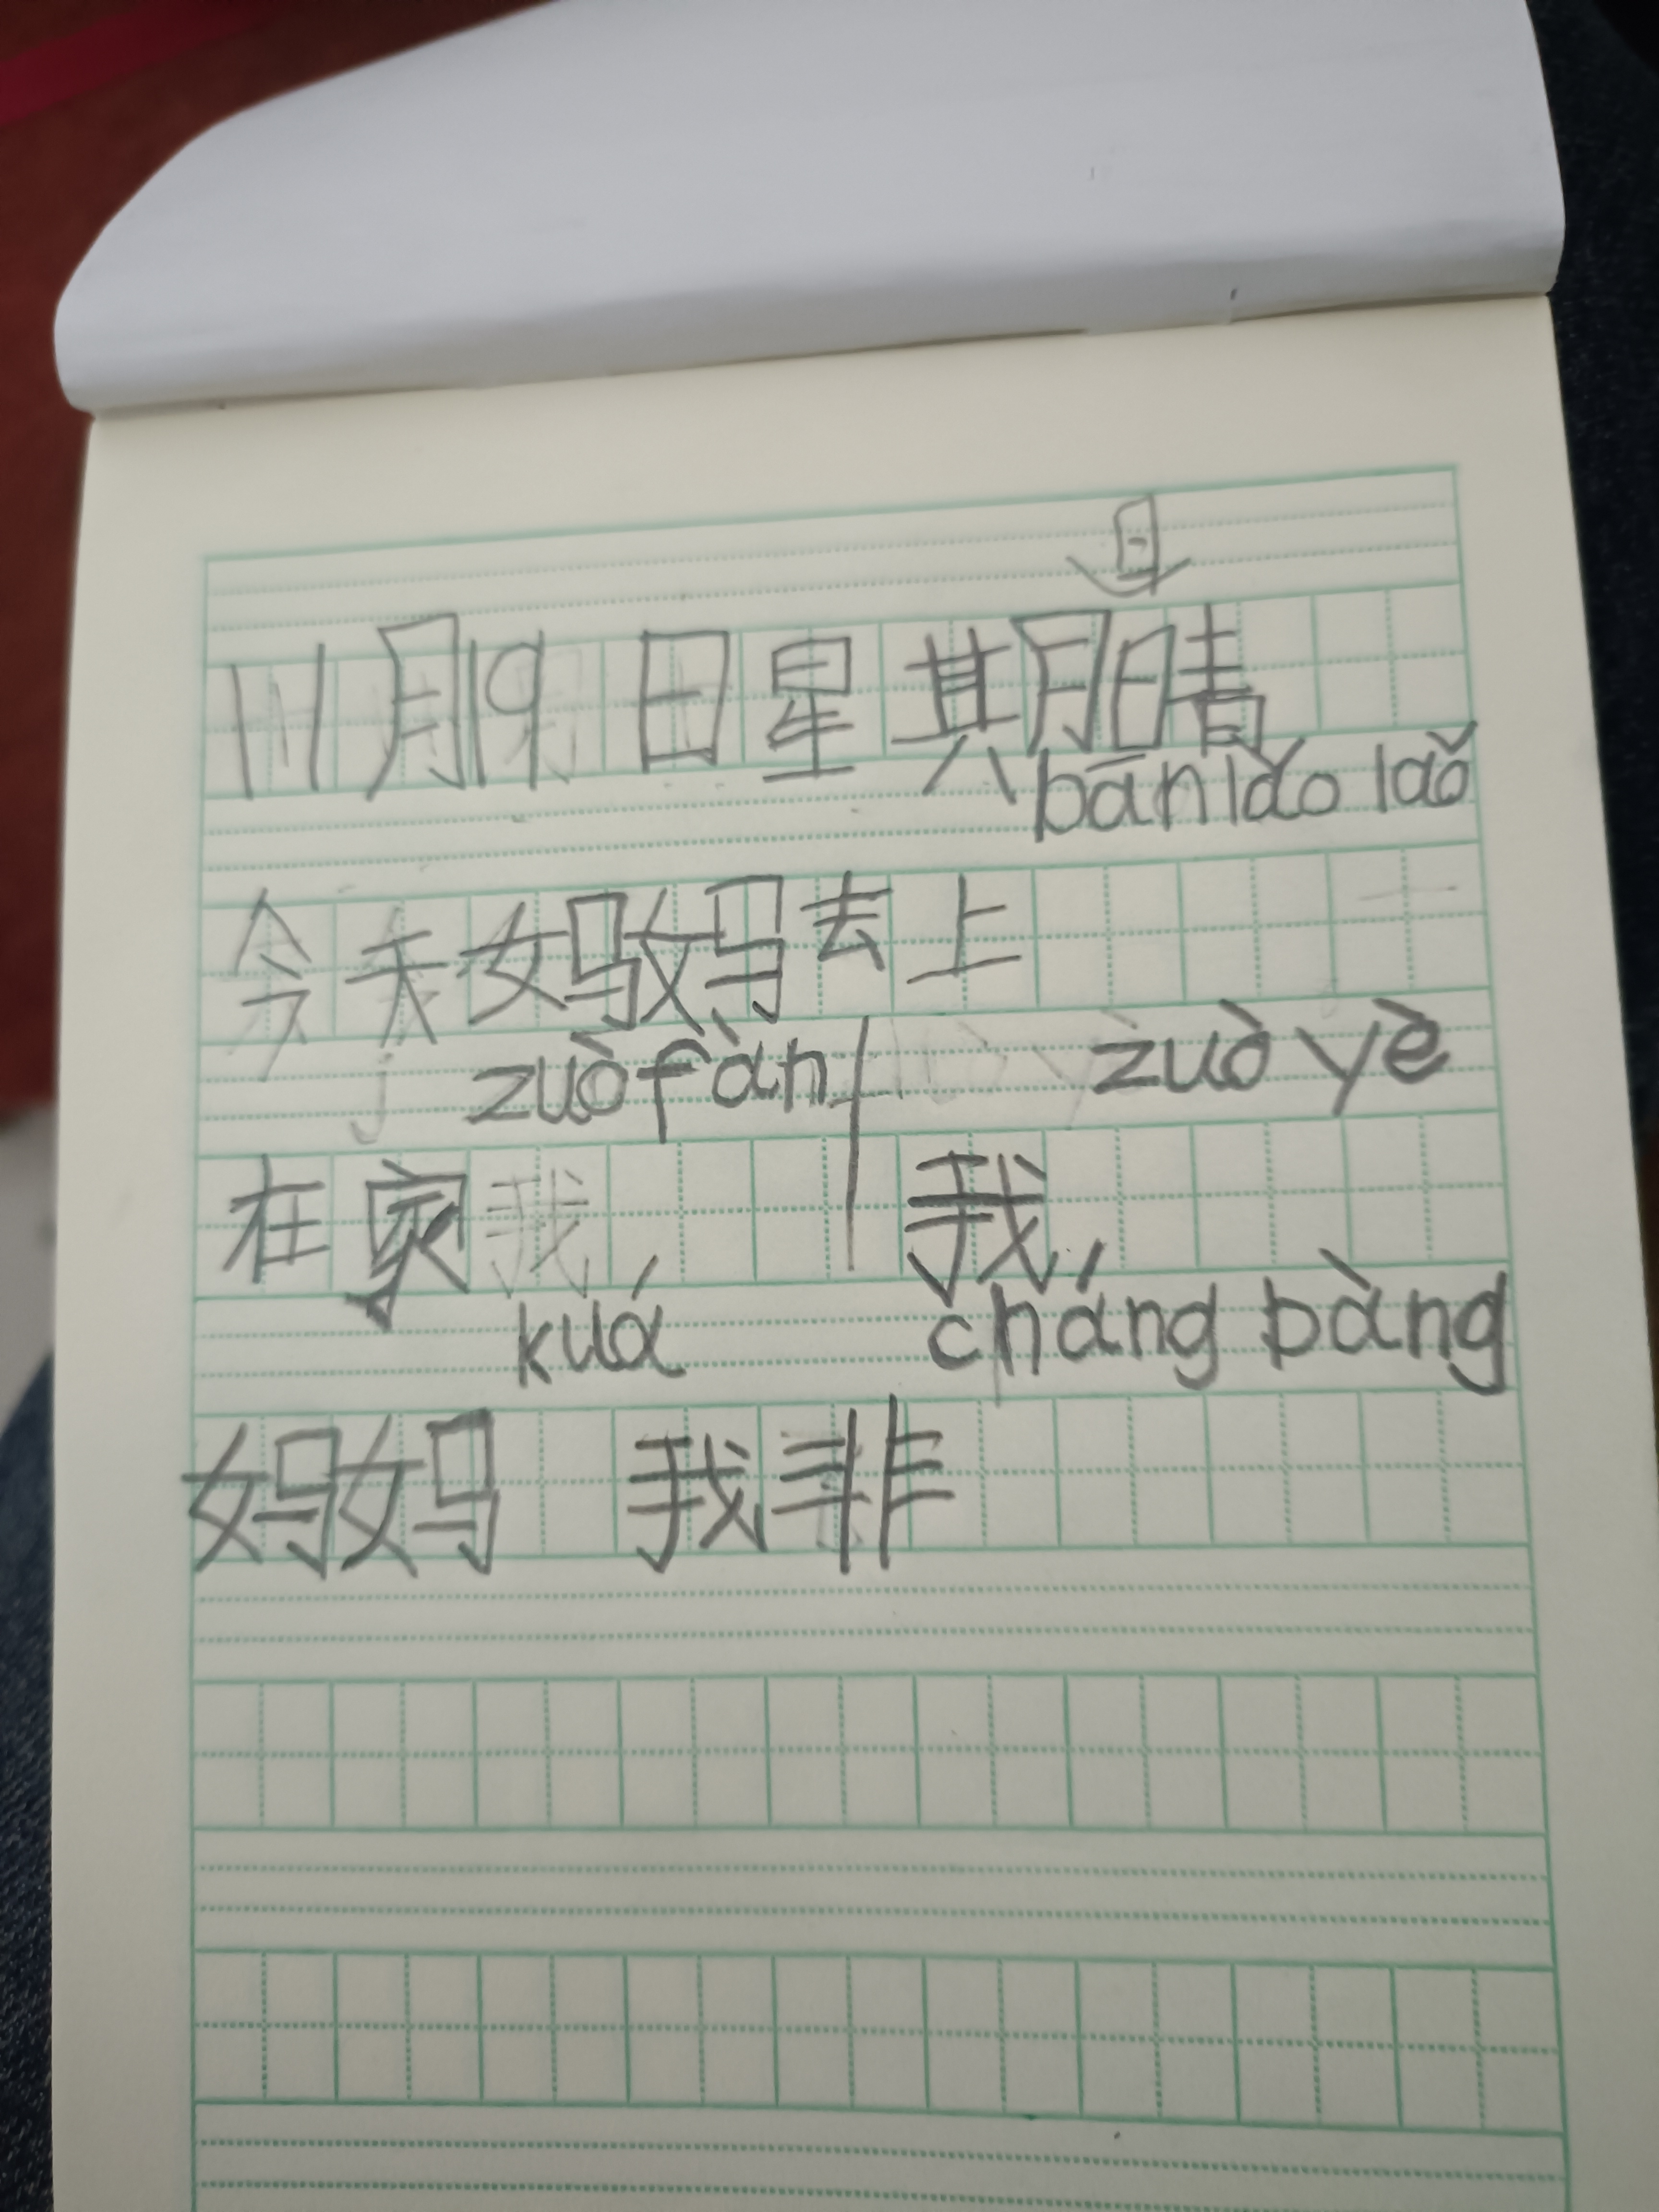 日
11月19日星期晴
bān lǎo lǎo
今天妈妈去上
zuò fàn zuò yè
在家我 我
kuá cháng bàng
妈妈 我非